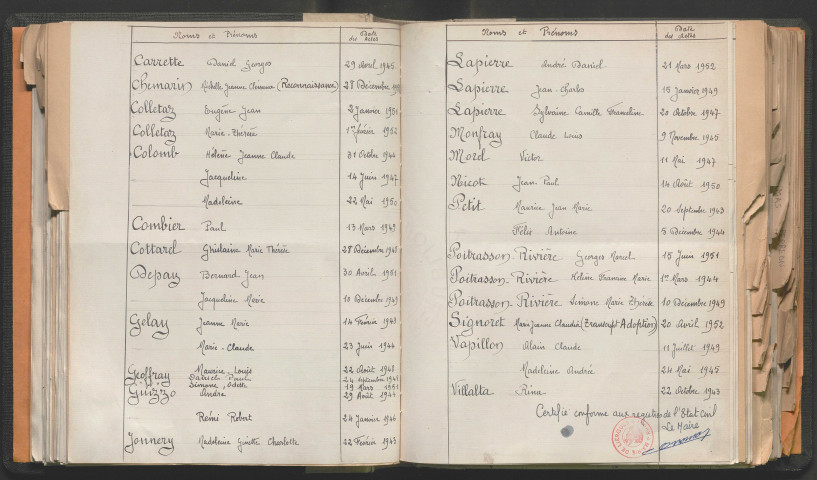 Noms et Prénoms Date des Actes
Carrette Daniel Georges 29 Avril 1945
Chemarin Michelle Jeanne Clémence (Reconnaissance) 28 Décembre
Colletaz Eugène Jean 2 Janvier 1951
Colletaz Marie-Thérèse 1er février 1952
Colomb Hélène Jeanne Claude 31 Octobre 1944
Jacqueline 14 Juin 1947
Madeleine 22 Mai 1950
Combier Paul 13 Mars 1949
Cottarel Ghislaine Marie Thérèse 28 Décembre 1948
Depay Bernard Jean 30 Avril 1951
Jacqueline Marie 10 Décembre 1949
Golay Jeanne Marie 14 Février 1943
Marie-Claude 23 Juin 1944
Geoffray Maurice Louis 22 Août 1941
24 Septembre
Simone, Odette 19 Mars 1951
Guizzo André 29 Août 1944
Rémi Robert 24 Janvier 1946
Jonnery Madeleine Ginette Charlotte 22 Février 1943
Noms et Prénoms Date des Actes
Lapierre André Daniel 21 Mars 1952
Lapierre Jean-Charles 15 Janvier 1949
Lapierre Sylvaine Camille Franceline 20 Octobre 1947
Monfray Claude Louis 9 Novembre 1945
Morel Victor 11 Mai 1947
Nicot Jean-Paul 14 Août 1950
Petit Maurice Jean Marie 20 Septembre 1943
Félix Antoine 5 Décembre 1944
Poitrasson-Rivière Georges Marcel 15 Juin 1951
Poitrasson-Rivière Hélène Francine Marie 1er Mars 1944
Poitrasson-Rivière Simone Marie Thérèse 10 Décembre 1949
Signoret Marie Jeanne Claudia (Transcript Adoption) 20 Avril 1952
Vapillon Alain Claude 11 Juillet 1949
Madeleine Andrée 24 Mai 1945
Villalta Rina 22 Octobre 1943
Certifié conforme aux registres de l'Etat Civil
Le Maire